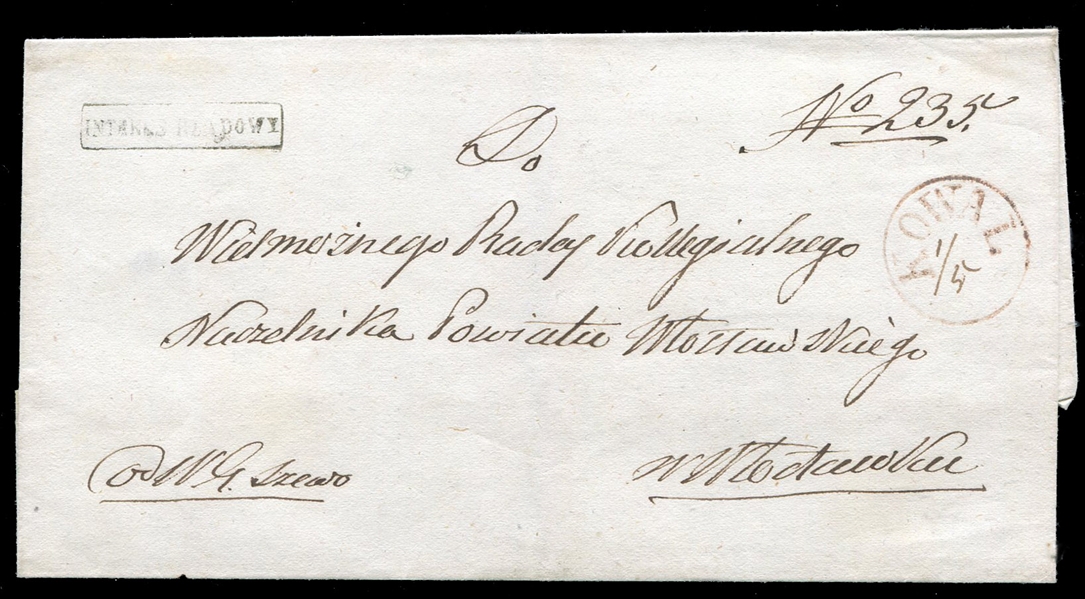 INTERES RZĄDOWY
No 235.
Do
KOWAL
1/5
Wielmożnego Radcy Kollegialnego
Naczelnika Powiatu Włocławskiego
od W. G.
w Włocławku